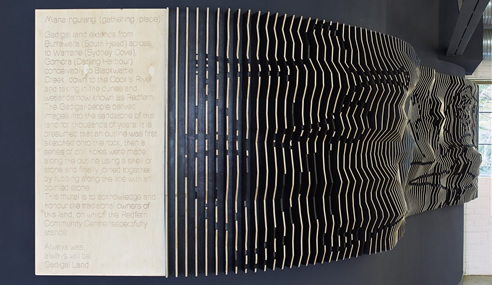 Mana ngurang (gathering place)
Gadigal land extends from
Burrawara (South Head) across
to Warrane (Sydney Cove),
Gomora (Darling Harbour)
Creek, down to the Cook's River
and taking in the dunes and
wetlands now known as Redfern.
The Gadigal people carved
images into the sandstone of this
land for thousands of years. It is
presumed that an outline was first
sketched onto the rock, then a
series of drill holes were made
along the outline using a shell or
stone and finally joined together
by rubbing along the line with a
pointed stone.
This mural is to acknowledge and
honour the traditional owners of
this land, on which the Redfern
Community Centre respectfully
stands.
Always was
always will be
Gadigal Land